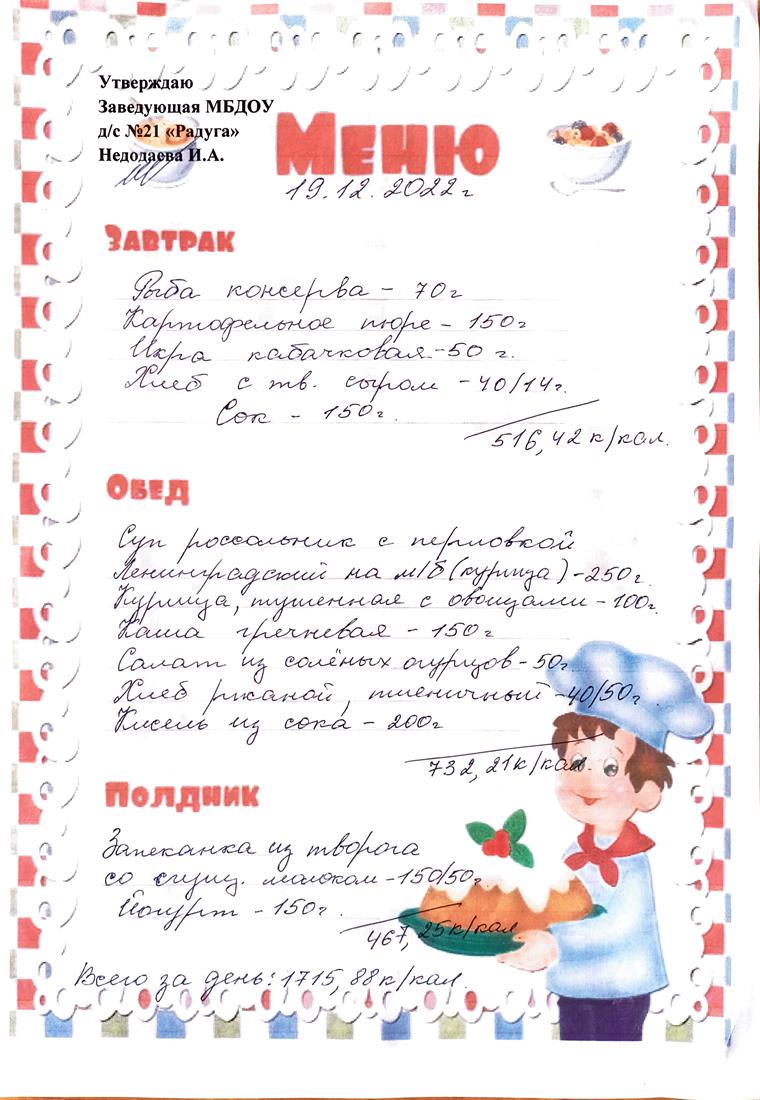 Утверждаю
Заведующая МБДОУ
д/с №21 «Радуга»
Недодаева И.А.
Меню
19.12.2022г
Завтрак
Рыба консерва – 70г
Картофельное пюре – 150г
Икра кабачковая – 50 г.
Хлеб с тв. сыром – 40/14г.
Сок – 150г.
516,42 к/кал.
Обед
Суп россольник с перловкой
Ленинградский на м/б (курица) – 250г.
Курица, тушенная с овощами – 100г.
Каша гречневая – 150г
Салат из солёных огурцов – 50г.
Хлеб ржаной, пшеничный – 40/50г.
Кисель из сока – 200г
732,21к/кал.
Полдник
Запеканка из творога
со сгущ. молоком – 150/50г.
Йогурт – 150г.
467,25к/кал
Всего за день: 1715,88к/кал.